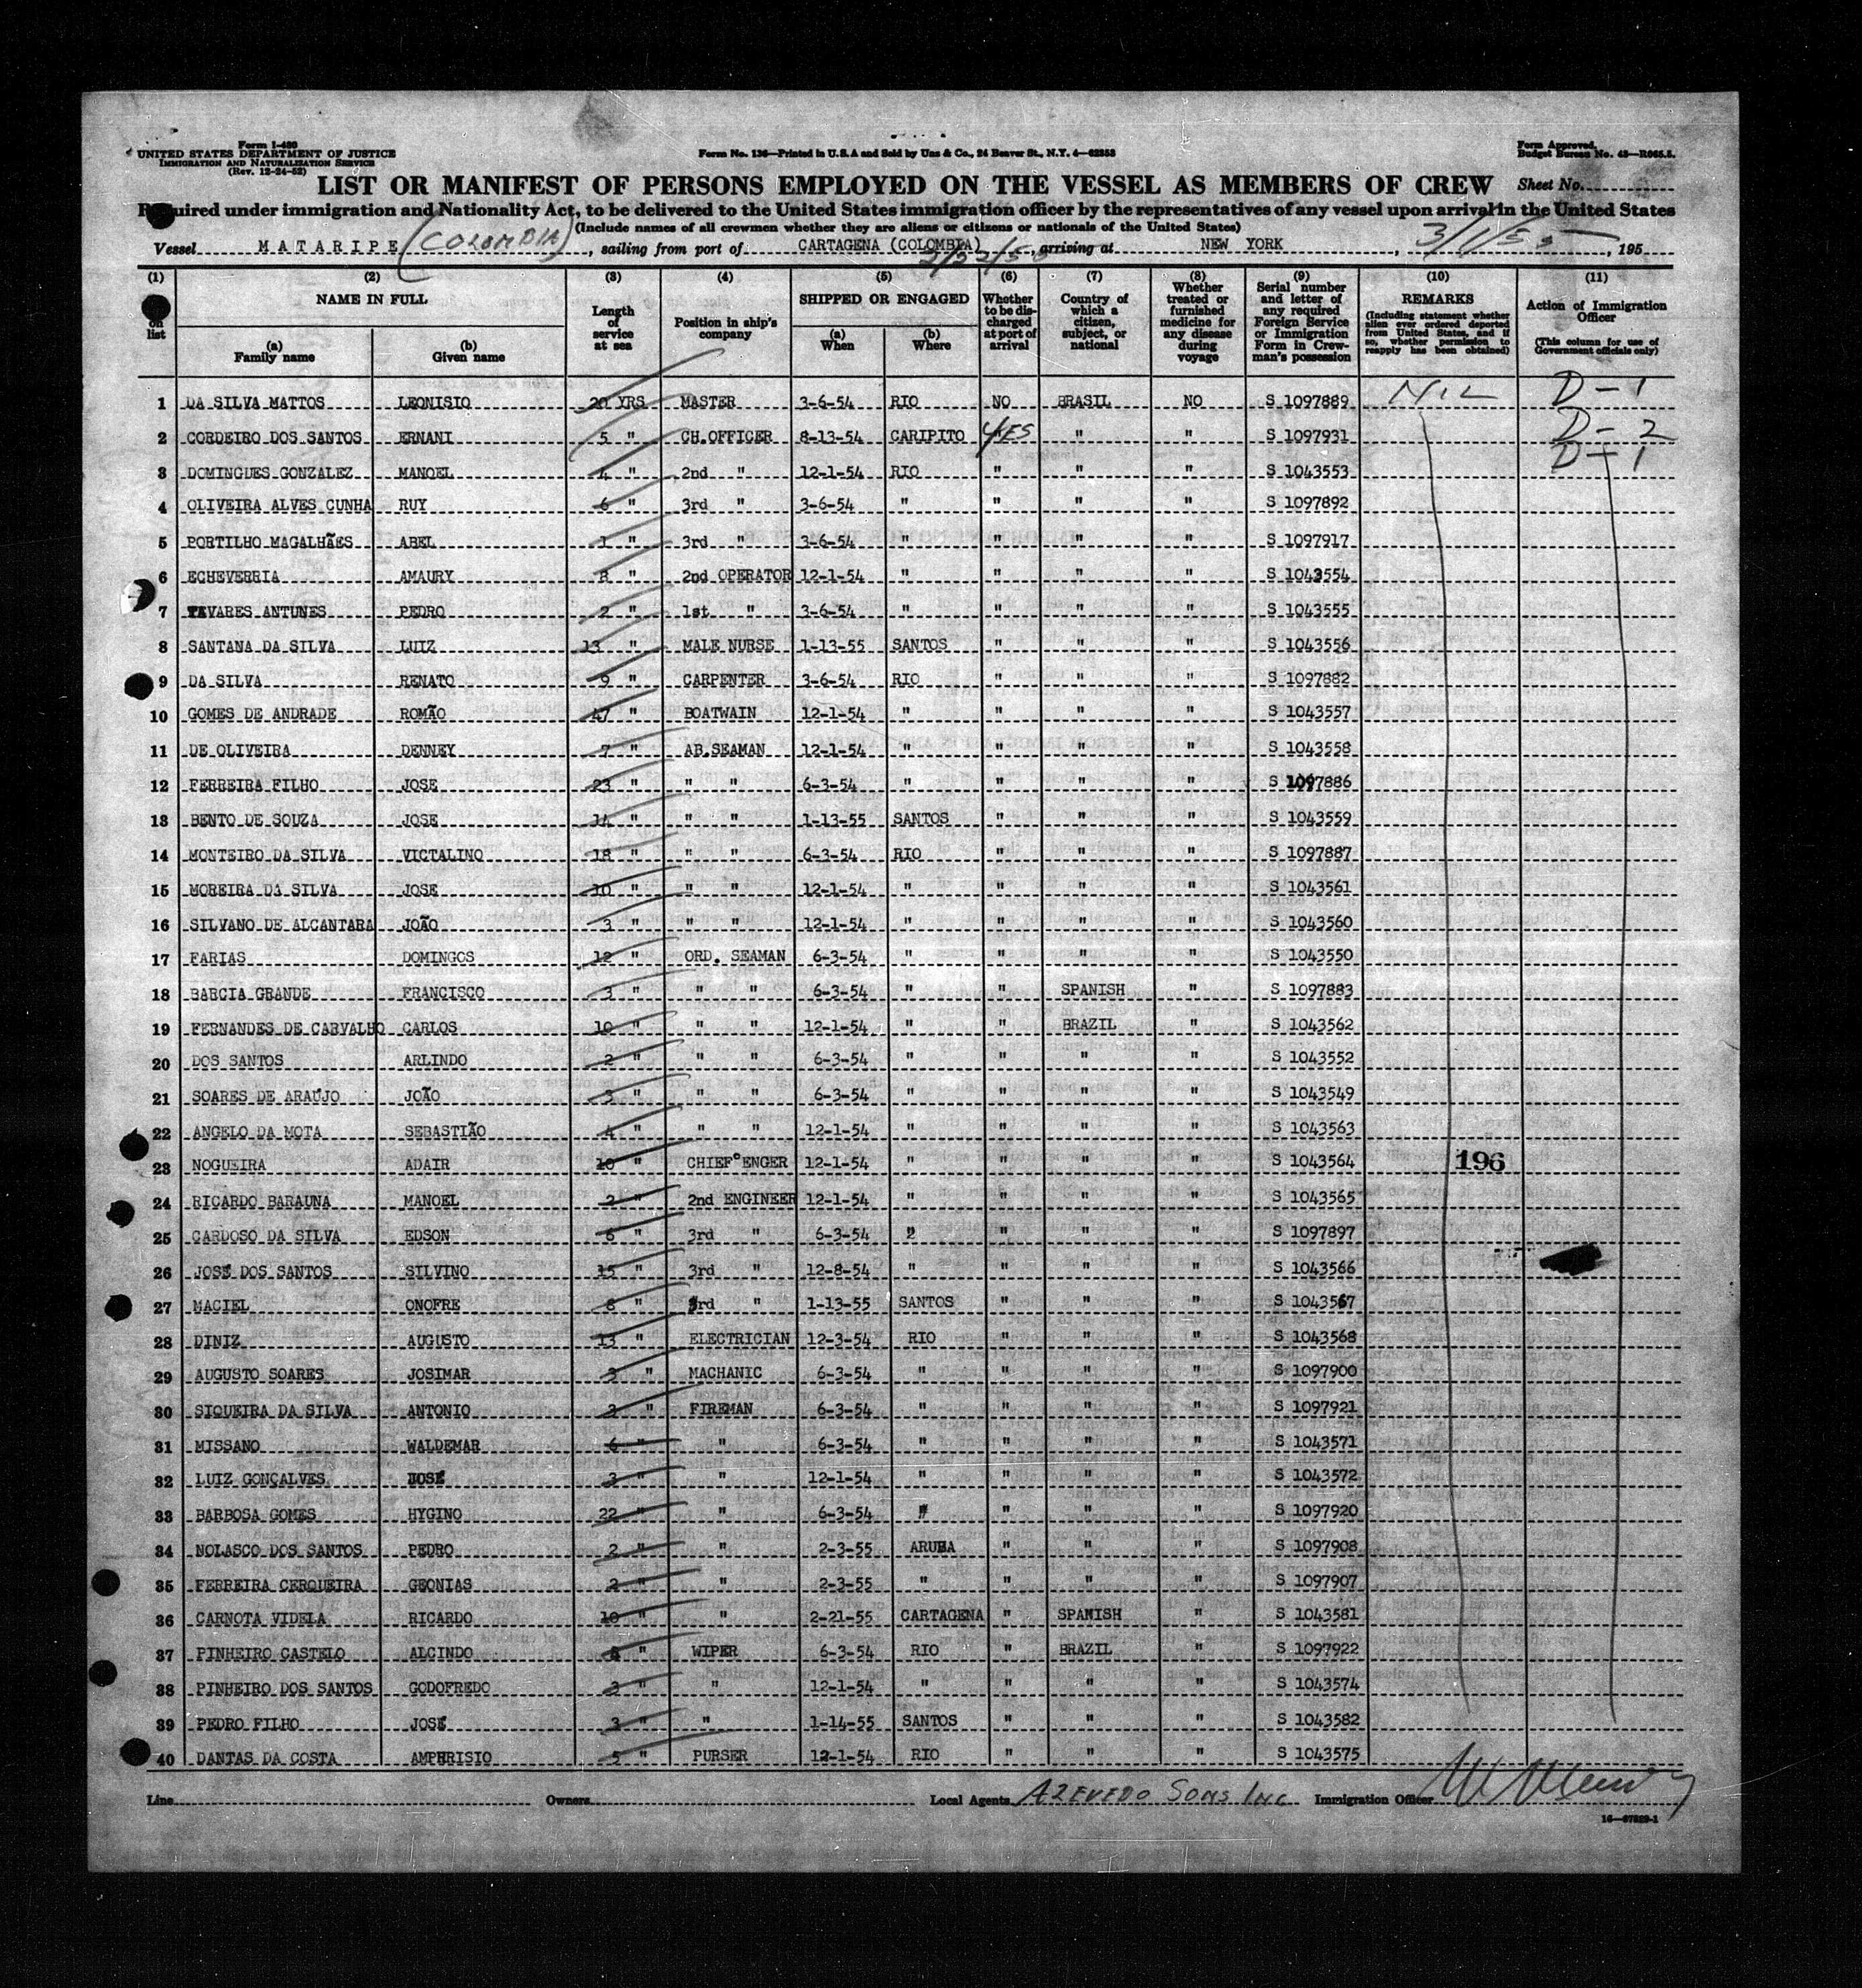 Form I-480
UNITED STATES DEPARTMENT OF JUSTICE
IMMIGRATION AND NATURALIZATION SERVICE
(Rev. 12-24-52)
Form No. 136—Printed in U.S.A and Sold by Unz & Co., 24 Beaver St., N.Y. 4—62353
Form Approved.
Budget Bureau No. 43—R065.5.
LIST OR MANIFEST OF PERSONS EMPLOYED ON THE VESSEL AS MEMBERS OF CREW Sheet No.
Required under immigration and Nationality Act, to be delivered to the United States immigration officer by the representatives of any vessel upon arrival in the United States
(Include names of all crewmen whether they are aliens or citizens or nationals of the United States)
Vessel MATARIPE (COLOMBIA), sailing from port of CARTAGENA (COLOMBIA), arriving at NEW YORK, 3/1/55, 195
(1) (2) (3) (4) (5) (6) (7) (8) (9) (10) (11)
on list
NAME IN FULL
(a) Family name
(b) Given name
Length of service at sea
Position in ship's company
SHIPPED OR ENGAGED
(a) When
(b) Where
Whether to be discharged at port of arrival
Country of which a citizen, subject, or national
Whether treated or furnished medicine for any disease during voyage
Serial number and letter of any required Foreign Service or Immigration Form in Crewman's possession
REMARKS
(Including statement whether alien ever ordered deported from United States, and if so, whether permission to reapply has been obtained)
Action of Immigration Officer
(This column for use of Government officials only)
1 DA SILVA MATTOS LEONISIO 20 YRS MASTER 3-6-54 RIO NO BRASIL NO S 1097889 NIL D-1
2 CORDEIRO DOS SANTOS ERNANI 5 " CH.OFFICER 8-13-54 CARIPITO YES " " S 1097931 D-2
3 DOMINGUES GONZALEZ MANOEL 4 " 2nd " 12-1-54 RIO " " " S 1043553 D-1
4 OLIVEIRA ALVES CUNHA RUY 6 " 3rd " 3-6-54 " " " " S 1097892
5 PORTILHO MAGALHÃES ABEL 1 " 3rd " 3-6-54 " " " " S 1097917
6 ECHEVERRIA AMAURY 8 " 2nd OPERATOR 12-1-54 " " " " S 1043554
7 TAVARES ANTUNES PEDRO 2 " 1st " 3-6-54 " " " " S 1043555
8 SANTANA DA SILVA LUIZ 13 " MALE NURSE 1-13-55 SANTOS " " " S 1043556
9 DA SILVA RENATO 9 " CARPENTER 3-6-54 RIO " " " S 1097882
10 GOMES DE ANDRADE ROMÃO 47 " BOATWAIN 12-1-54 " " " " S 1043557
11 DE OLIVEIRA DENNEY 7 " AB.SEAMAN 12-1-54 " " " " S 1043558
12 FERREIRA FILHO JOSE 23 " " " 6-3-54 " " " " S 1097886
13 BENTO DE SOUZA JOSE 14 " " " 1-13-55 SANTOS " " " S 1043559
14 MONTEIRO DA SILVA VICTALINO 18 " " " 6-3-54 RIO " " " S 1097887
15 MOREIRA DA SILVA JOSE 10 " " " 12-1-54 " " " " S 1043561
16 SILVANO DE ALCANTARA JOÃO 3 " " " 12-1-54 " " " " S 1043560
17 FARIAS DOMINGOS 12 " ORD. SEAMAN 6-3-54 " " " " S 1043550
18 BARCIA GRANDE FRANCISCO 3 " " " 6-3-54 " " SPANISH " S 1097883
19 FERNANDES DE CARVALHO CARLOS 10 " " " 12-1-54 " " BRAZIL " S 1043562
20 DOS SANTOS ARLINDO 2 " " " 6-3-54 " " " " S 1043552
21 SOARES DE ARAÚJO JOÃO 3 " " " 6-3-54 " " " " S 1043549
22 ANGELO DA MOTA SEBASTIÃO 4 " " " 12-1-54 " " " " S 1043563
23 NOGUEIRA ADAIR 10 " CHIEF°ENGER 12-1-54 " " " " S 1043564 196
24 RICARDO BARAUNA MANOEL 2 " 2nd ENGINEER 12-1-54 " " " " S 1043565
25 CARDOSO DA SILVA EDSON 6 " 3rd " 6-3-54 2 " " " S 1097897
26 JOSÉ DOS SANTOS SILVINO 15 " 3rd " 12-8-54 " " " " S 1043566
27 MACIEL ONOFRE 8 " 3rd " 1-13-55 SANTOS " " " S 1043567
28 DINIZ AUGUSTO 13 " ELECTRICIAN 12-3-54 RIO " " " S 1043568
29 AUGUSTO SOARES JOSIMAR 3 " MACHANIC 6-3-54 " " " " S 1097900
30 SIQUEIRA DA SILVA ANTONIO 3 " FIREMAN 6-3-54 " " " " S 1097921
31 MISSANO WALDEMAR 6 " " 6-3-54 " " " " S 1043571
32 LUIZ GONÇALVES JOSÉ 3 " " 12-1-54 " " " " S 1043572
33 BARBOSA GOMES HYGINO 22 " " 6-3-54 " " " " S 1097920
34 NOLASCO DOS SANTOS PEDRO 2 " " 2-3-55 ARUBA " " " S 1097908
35 FERREIRA CERQUEIRA GEONIAS 2 " " 2-3-55 " " " " S 1097907
36 CARNOTA VIDELA RICARDO 10 " " 2-21-55 CARTAGENA " SPANISH " S 1043581
37 PINHEIRO CASTELO ALCINDO " WIPER 6-3-54 RIO " BRAZIL " S 1097922
38 PINHEIRO DOS SANTOS GODOFREDO 3 " " 12-1-54 " " " " S 1043574
39 PEDRO FILHO JOSÉ 3 " " 1-14-55 SANTOS " " " S 1043582
40 DANTAS DA COSTA AMPHRISIO 5 " PURSER 12-1-54 RIO " " " S 1043575
Line Owners Local Agents AZEVEDO SONS INC Immigration Officer
16—67829-1